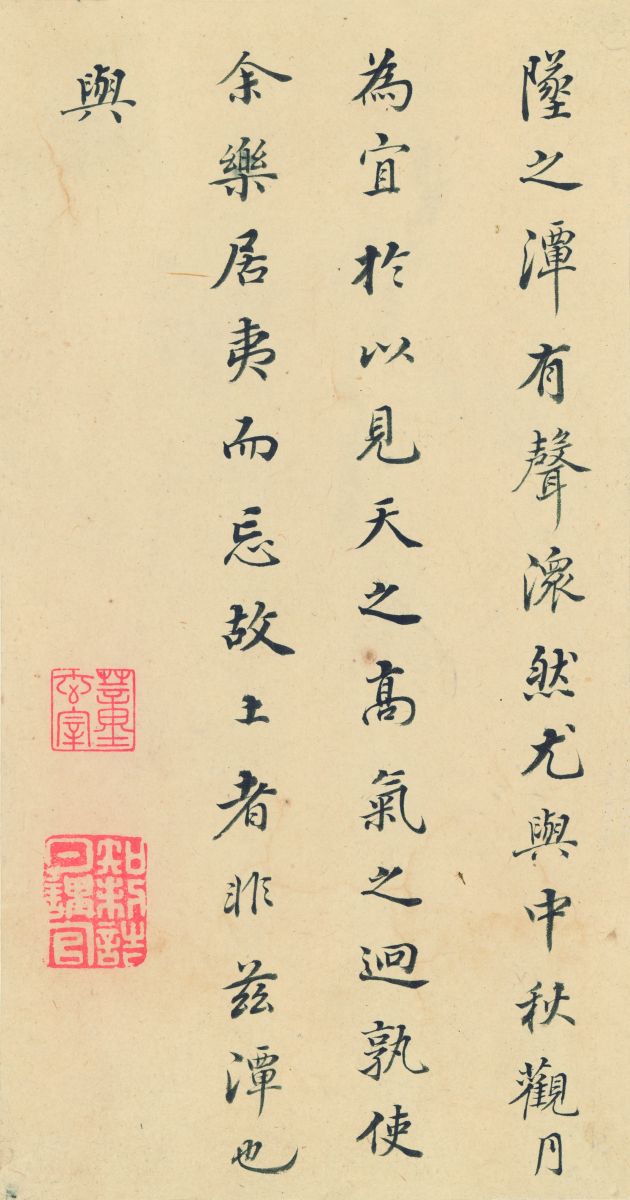 墜之潭有聲潀然尤與中秋觀月
為宜於以見天之髙氣之逈孰使
余樂居夷而忘故土者非茲潭也
與
董氏玄宰
知制誥日講官